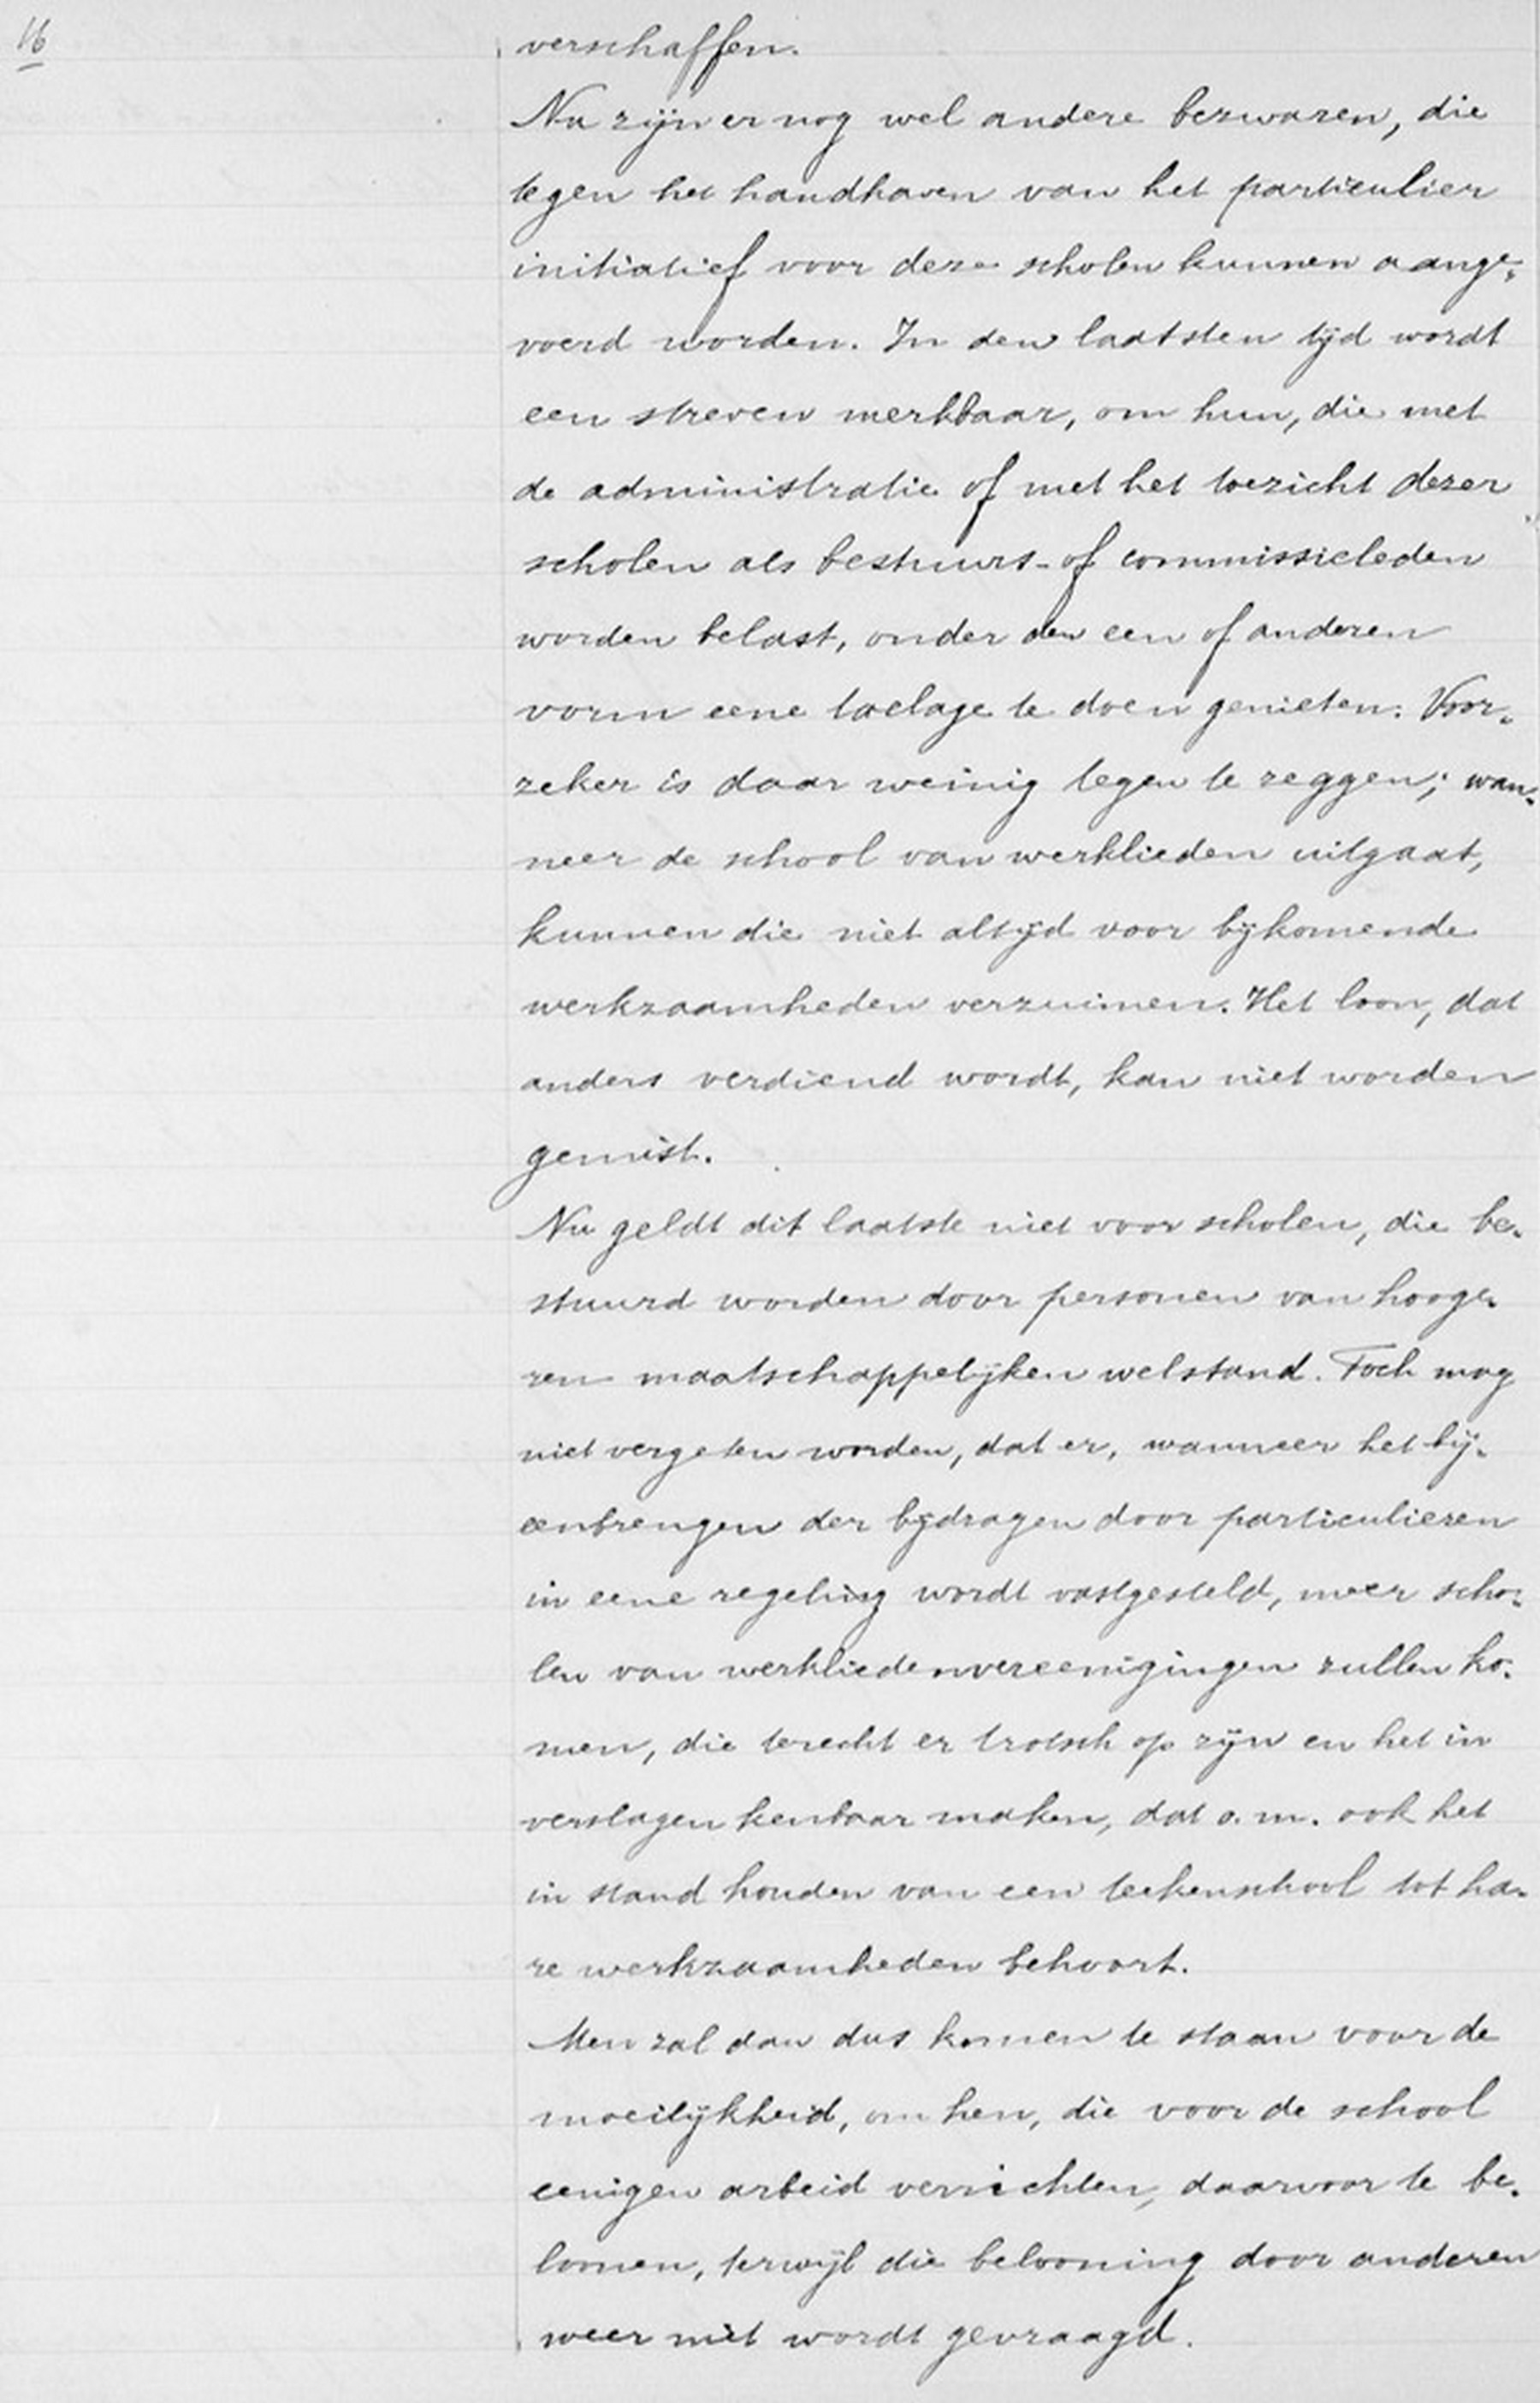 16
verschaffen.
Nu zijn er nog wel andere bezwaren, die
tegen het handhaven van het particulier
initiatief voor deze scholen kunnen aange-
voerd worden. In den laatsten tijd wordt
een streven merkbaar, om hun, die met
de administratie of met het toezicht dezer
scholen als bestuurs- of commissieleden
worden belast, onder den een of anderen
vorm eene toelage te doen genieten. Voor-
zeker is daar weinig tegen te zeggen; wan-
neer de school van werklieden uitgaat,
kunnen die niet altijd voor bijkomende
werkzaamheden verzuimen. Het loon, dat
anders verdiend wordt, kan niet worden
gemist.
Nu geldt dit laatste niet voor scholen, die be-
stuurd worden door personen van hooge-
ren maatschappelijken welstand. Toch mag
niet vergeten worden, dat er, wanneer het bij-
eenbrengen der bijdragen door particulieren
in eene regeling wordt vastgesteld, meer scho-
len van werkliedenvereenigingen zullen ko-
men, die terecht er trotsch op zijn en het in
verslagen kenbaar maken, dat o.m. ook het
in stand houden van een teekenschool tot ha-
re werkzaamheden behoort.
Men zal dan dus komen te staan voor de
moeilijkheid, om hen, die voor de school
eenigen arbeid verrichten, daarvoor te be-
loonen, terwijl die belooning door anderen
weer niet wordt gevraagd.